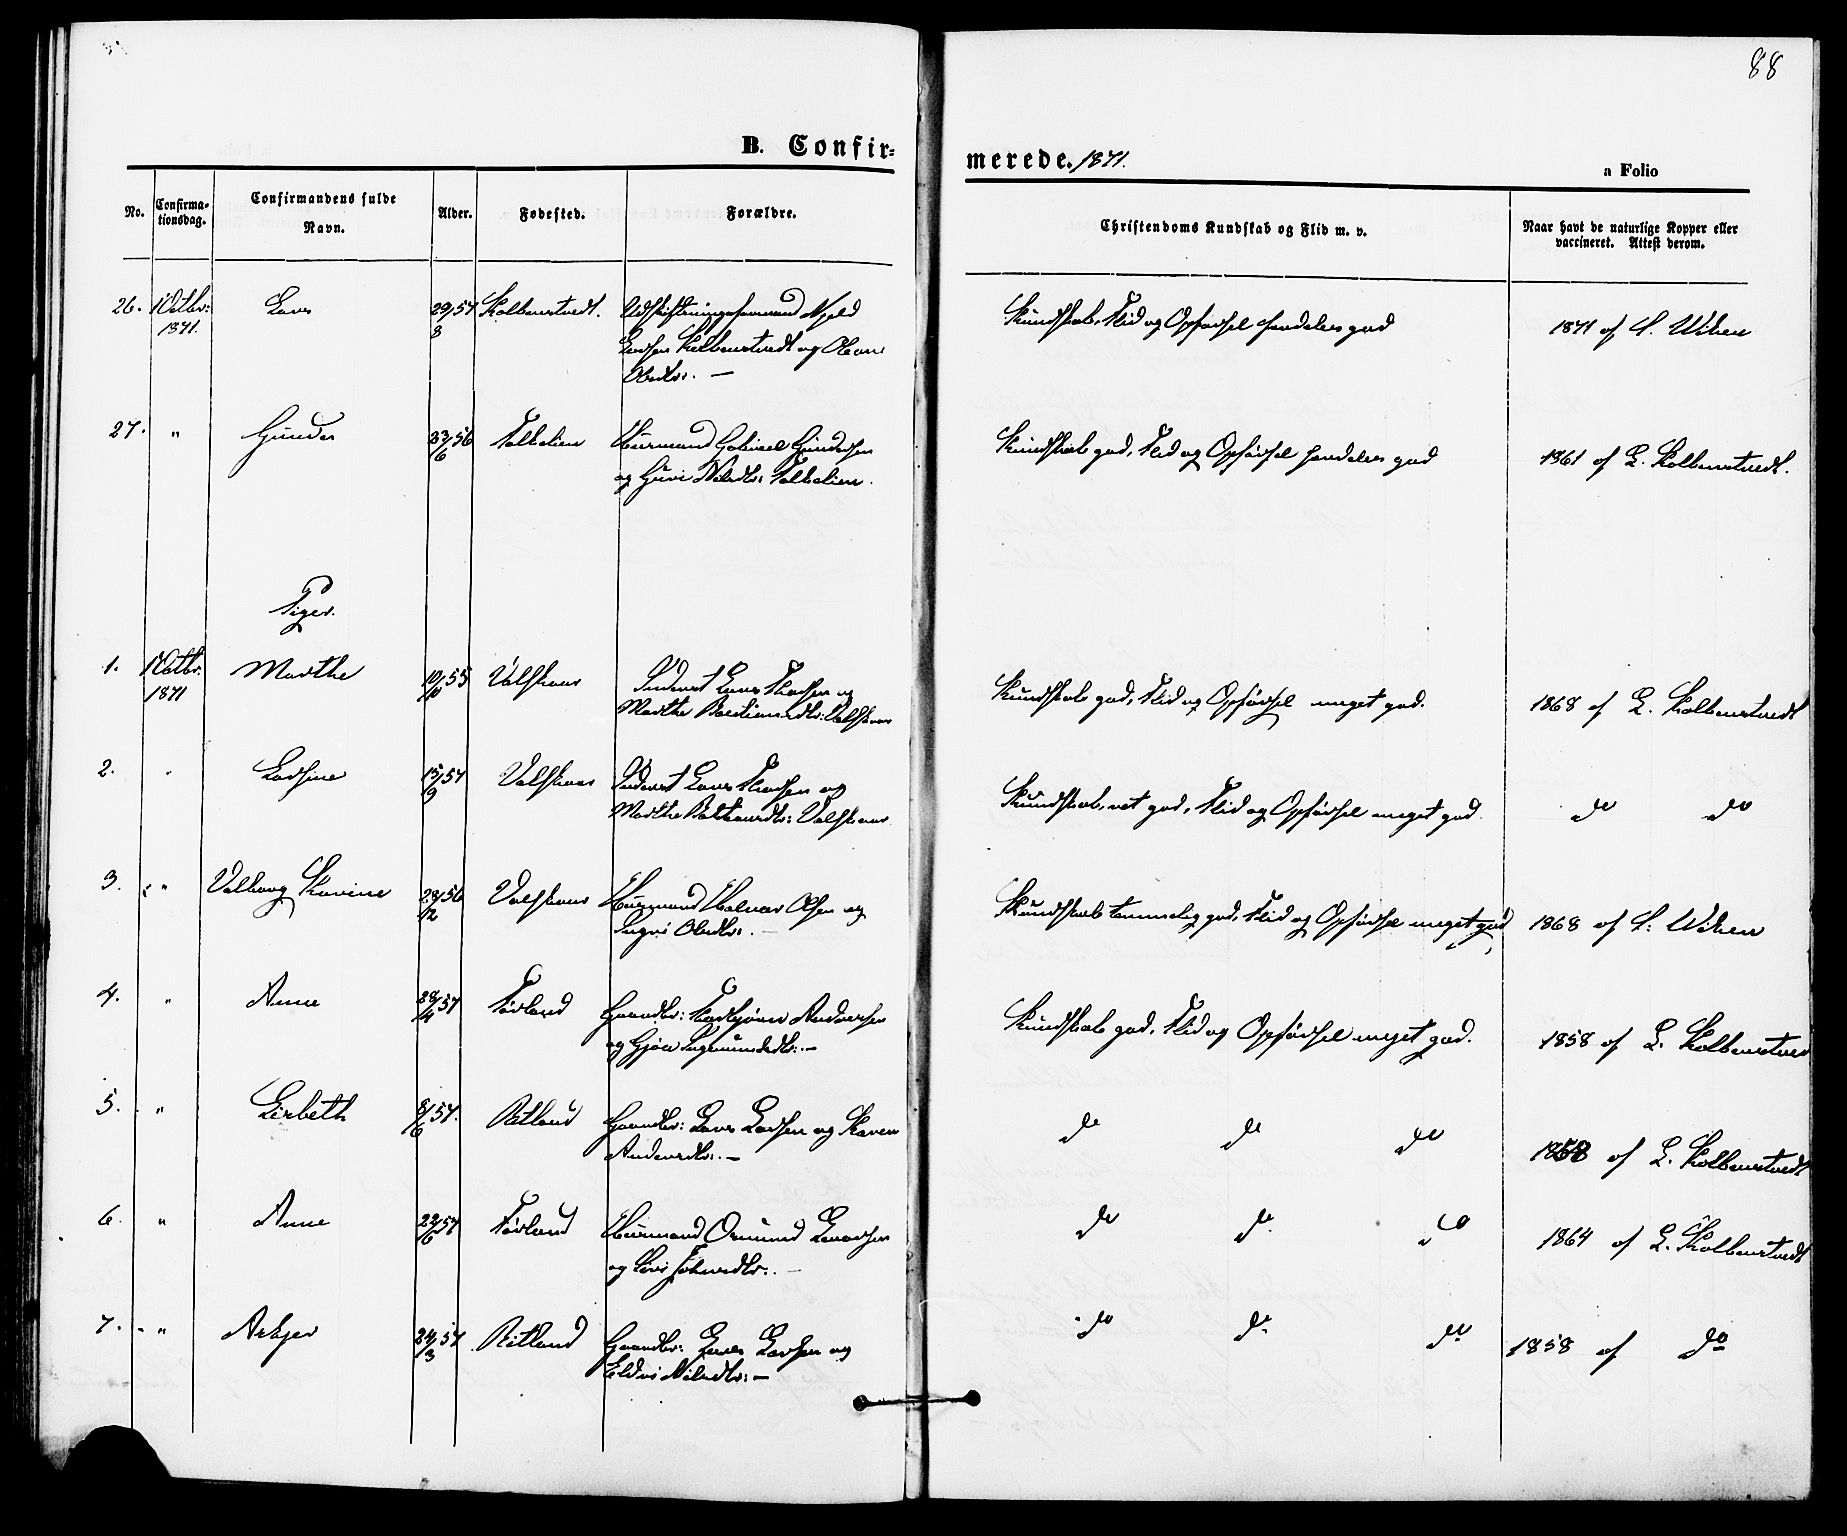 88
B. Confir=
merede. 1871.
a Folio
No.
Confirma-
tionsdag.
Confirmandens fulde
Navn.
Alder.
Fødested.
Forældre.
Christendoms Kundskab og Flid m. v.
Naar havt de naturlige Kopper eller
vaccineret. Attest derom.
26. 1 Octbr: Lars 29/8 57 Kolbenstvedt. Udskiftningsformand Njeld
1871. Larsen Kolbenstvedt og Oleane
Olsdtr:. —
Kundskab, Flid og Opførsel saadeles god 1871 af S. Wiken
27. " Gunder 23/6 56 Husmand Gabriel Gundersen
og Guri Nilsdtr:
Kundskab god, Flid og Opførsel saadeles god 1861 af L. Kolbenstvedt.
Piger.
1. 1 Octbr. Marthe 10/10 55 Valskaar Inderst Lars
1871 Marthe Valskaar
Kundskab god, Flid og Opførsel meget god. 1868 af L. Kolbenstvedt
2. " Larsine 15/9 57 Valskaar Inderst Lars og
Marthe Valskaar
Kundskab, vet god, Flid og Opførsel meget god. do do
3. " Valborg Karine 28/2 56 Valskaar Husmand Halvor Olsen og
Ingri Olsdtr:. —
Kundskab temmelig god, Flid og Opførsel meget god 1868 af S: Wiken
4. " Anne 28/4 57 Førland Gaardbr: Torbjørn Andersen
og Gjøa Sigmundsdtr:. —
Kundskab god, Flid og Opførsel meget god. 1858 af L. Kolbenstved
5. " Lisbeth 8/6 57. Ritland Gaardbr: Lars Larsen og Karen
Andersdtr:. —
do do do 1858 af L. Kolbenstvedt
6. " Anne 22/6 57 Førland Husmand Osmund
og Siri Johnsdtr:. —
do do. do 1864 af L. Kolbenstvedt
7. " Askjer 24/3 57 Ritland Gaardbr: Lars Larsen og
Eldri Nilsdtr: —
do do. do 1858 af do